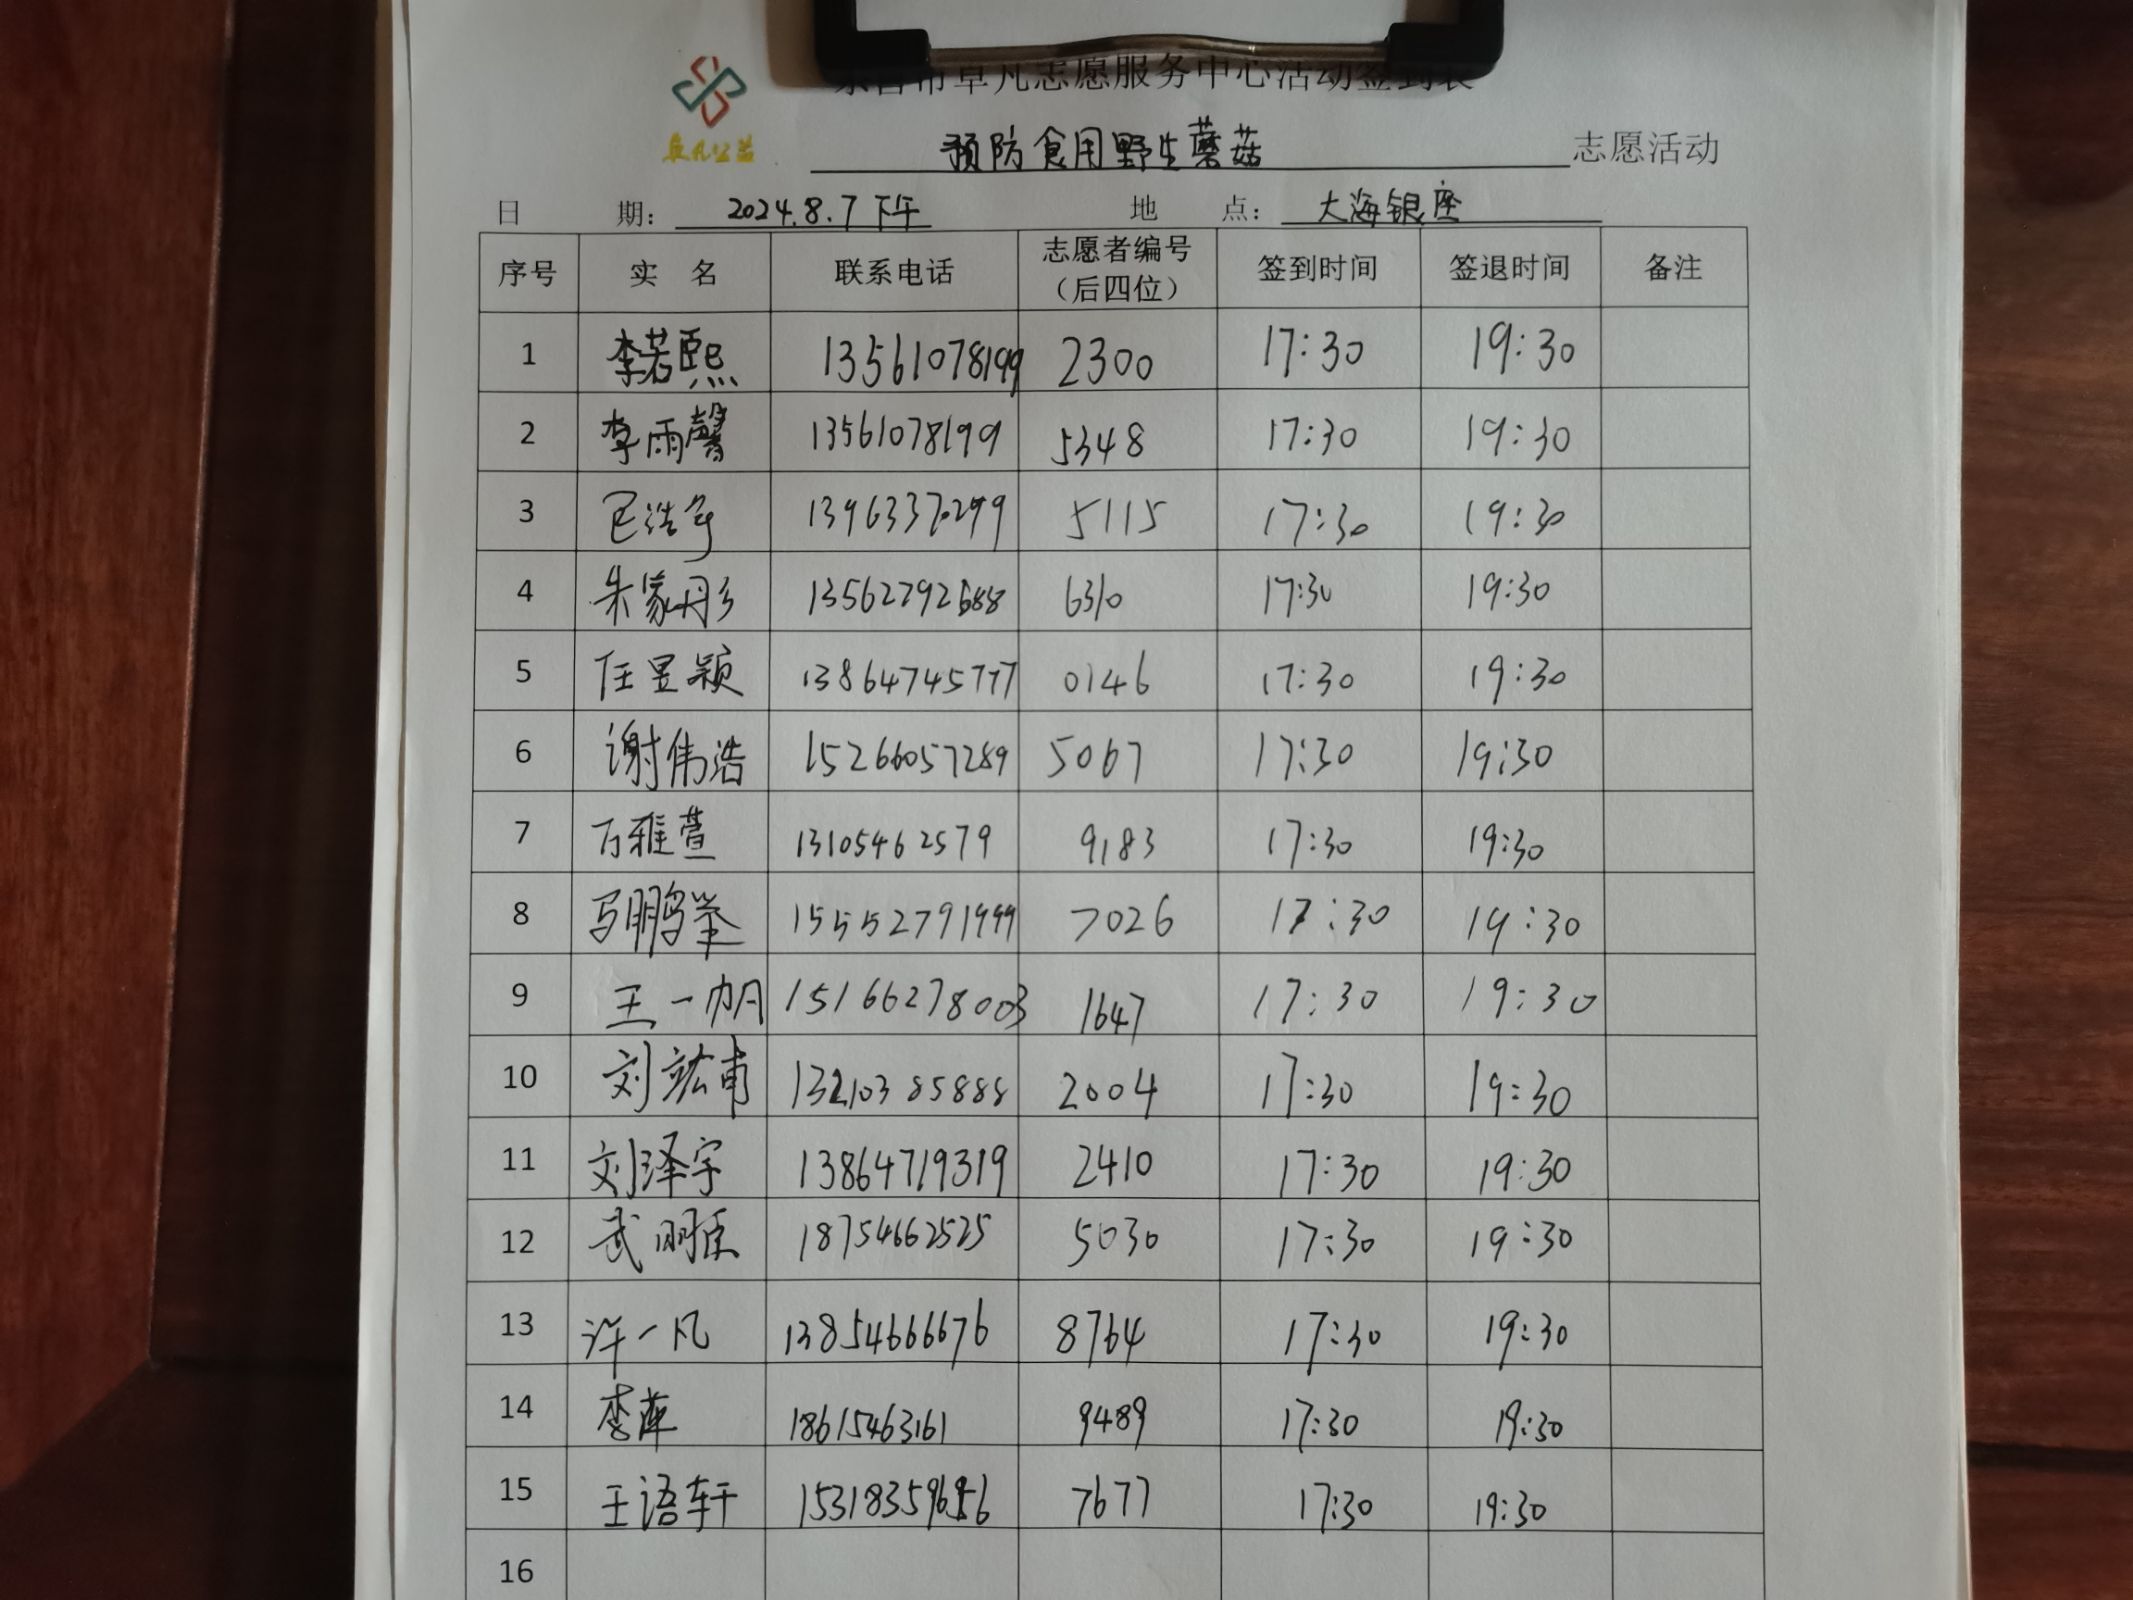 市卓凡志愿服务中心活动签到表
卓凡公益
预防食用野生蘑菇 志愿活动
日 期： 2024.8.7 下午 地 点： 大海银座
序号 实 名 联系电话 志愿者编号（后四位） 签到时间 签退时间 备注
1 李若熙 13561078199 2300 17:30 19:30
2 李雨馨 13561078199 5348 17:30 19:30
3 13963370299 5115 17:30 19:30
4 朱家彤 13562792688 6310 17:30 19:30
5 任昱颖 13864745777 0146 17:30 19:30
6 谢伟浩 15266057289 5067 17:30 19:30
7 万雅萱 13105462579 9183 17:30 19:30
8 马鹏举 15552791999 7026 17:30 19:30
9 王一帆 15166278003 1647 17:30 19:30
10 刘竑甫 13210385888 2004 17:30 19:30
11 刘泽宇 13864719319 2410 17:30 19:30
12 武明臣 18754662525 5030 17:30 19:30
13 许一凡 13854666676 8764 17:30 19:30
14 李萍 18615463161 9489 17:30 19:30
15 王语轩 7677 17:30 19:30
16